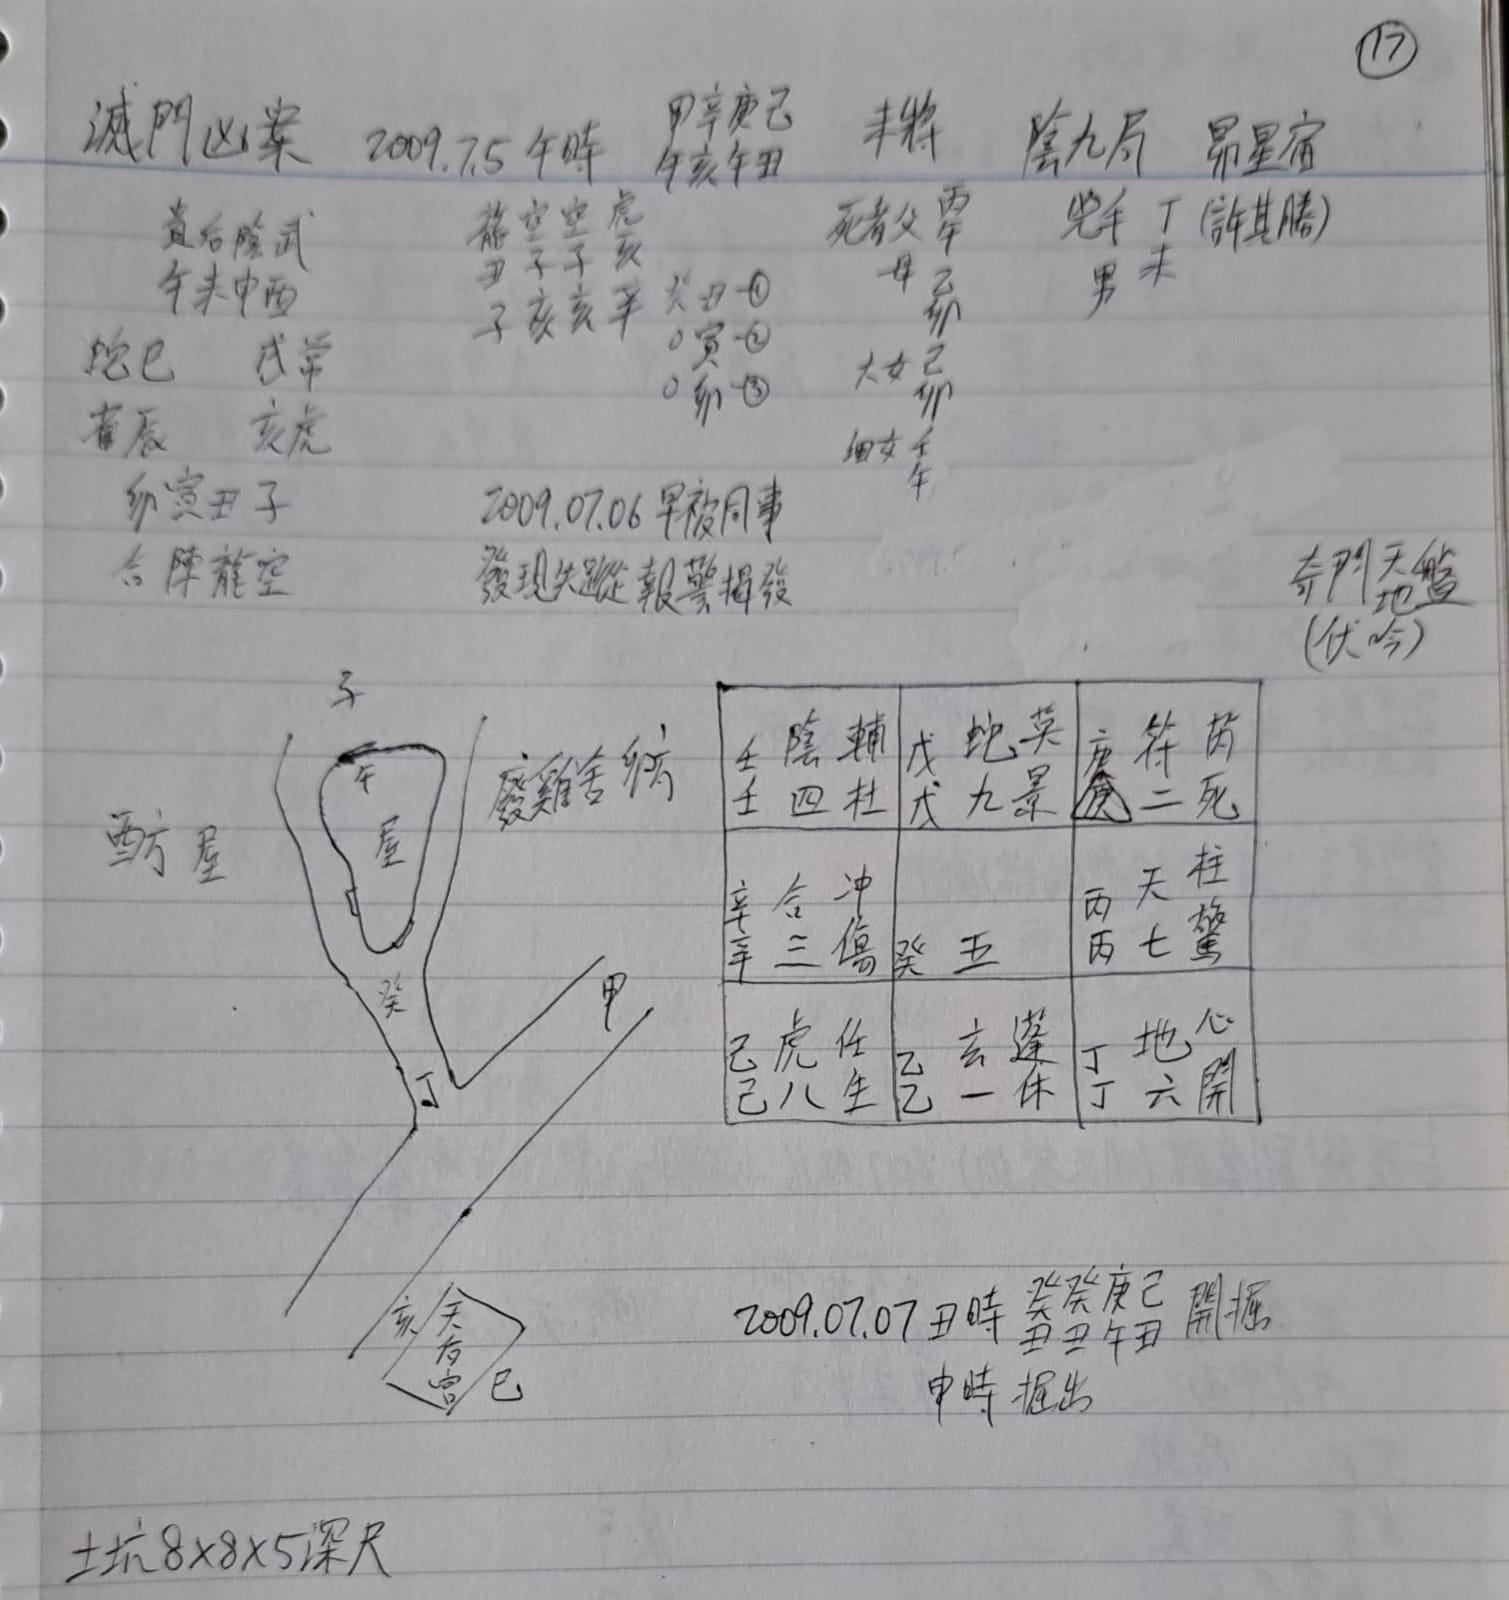 17
滅門凶案 2009.7.5 午時 甲辛庚己 未將 陰九局 昴星宿
午亥午丑
貴后陰武 龍空空虎 死者父 丙午 兇手 丁未 (許其勝)
午未申酉 丑子子亥 母 乙卯 男
子亥亥辛 癸丑-①
○寅-②
○卯-③
蛇巳 戌常 大女 己卯
雀辰 亥虎 細女 壬午
卯寅丑子 2009.07.06 早被同事
合陳龍空 發現失蹤報警揭發
奇門天地盤
(伏吟)
子
午
屋
酉方屋
廢雞舍 卯方
癸
丁
甲
亥 天后宮 巳
壬陰輔 戊蛇英 庚符芮
壬四杜 戊九景 庚二死
辛合冲 丙天柱
辛三傷 癸五 丙七驚
己虎任 乙玄蓬 丁地心
己八生 乙一休 丁六開
2009.07.07 丑時 癸癸庚己 開掘
丑丑午丑
申時掘出
土坑8x8x5深尺